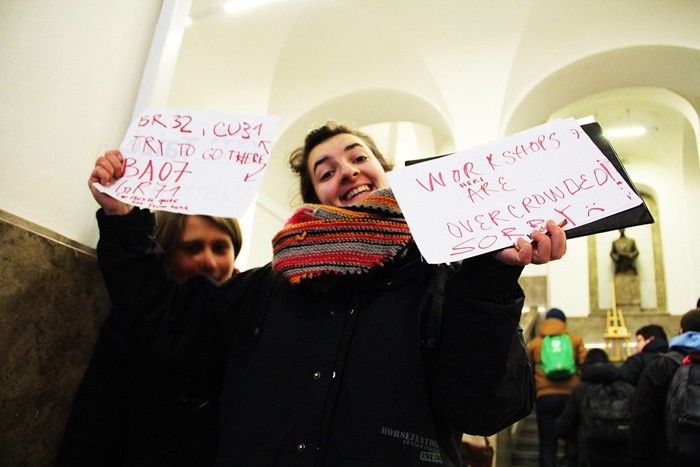 GR32, CUB1
TRY TO GO THERE
BA07
GR71
WORKSHOPS
HERE
ARE
OVERCROWDED!
SORRY :(
HORSEFEATHERS